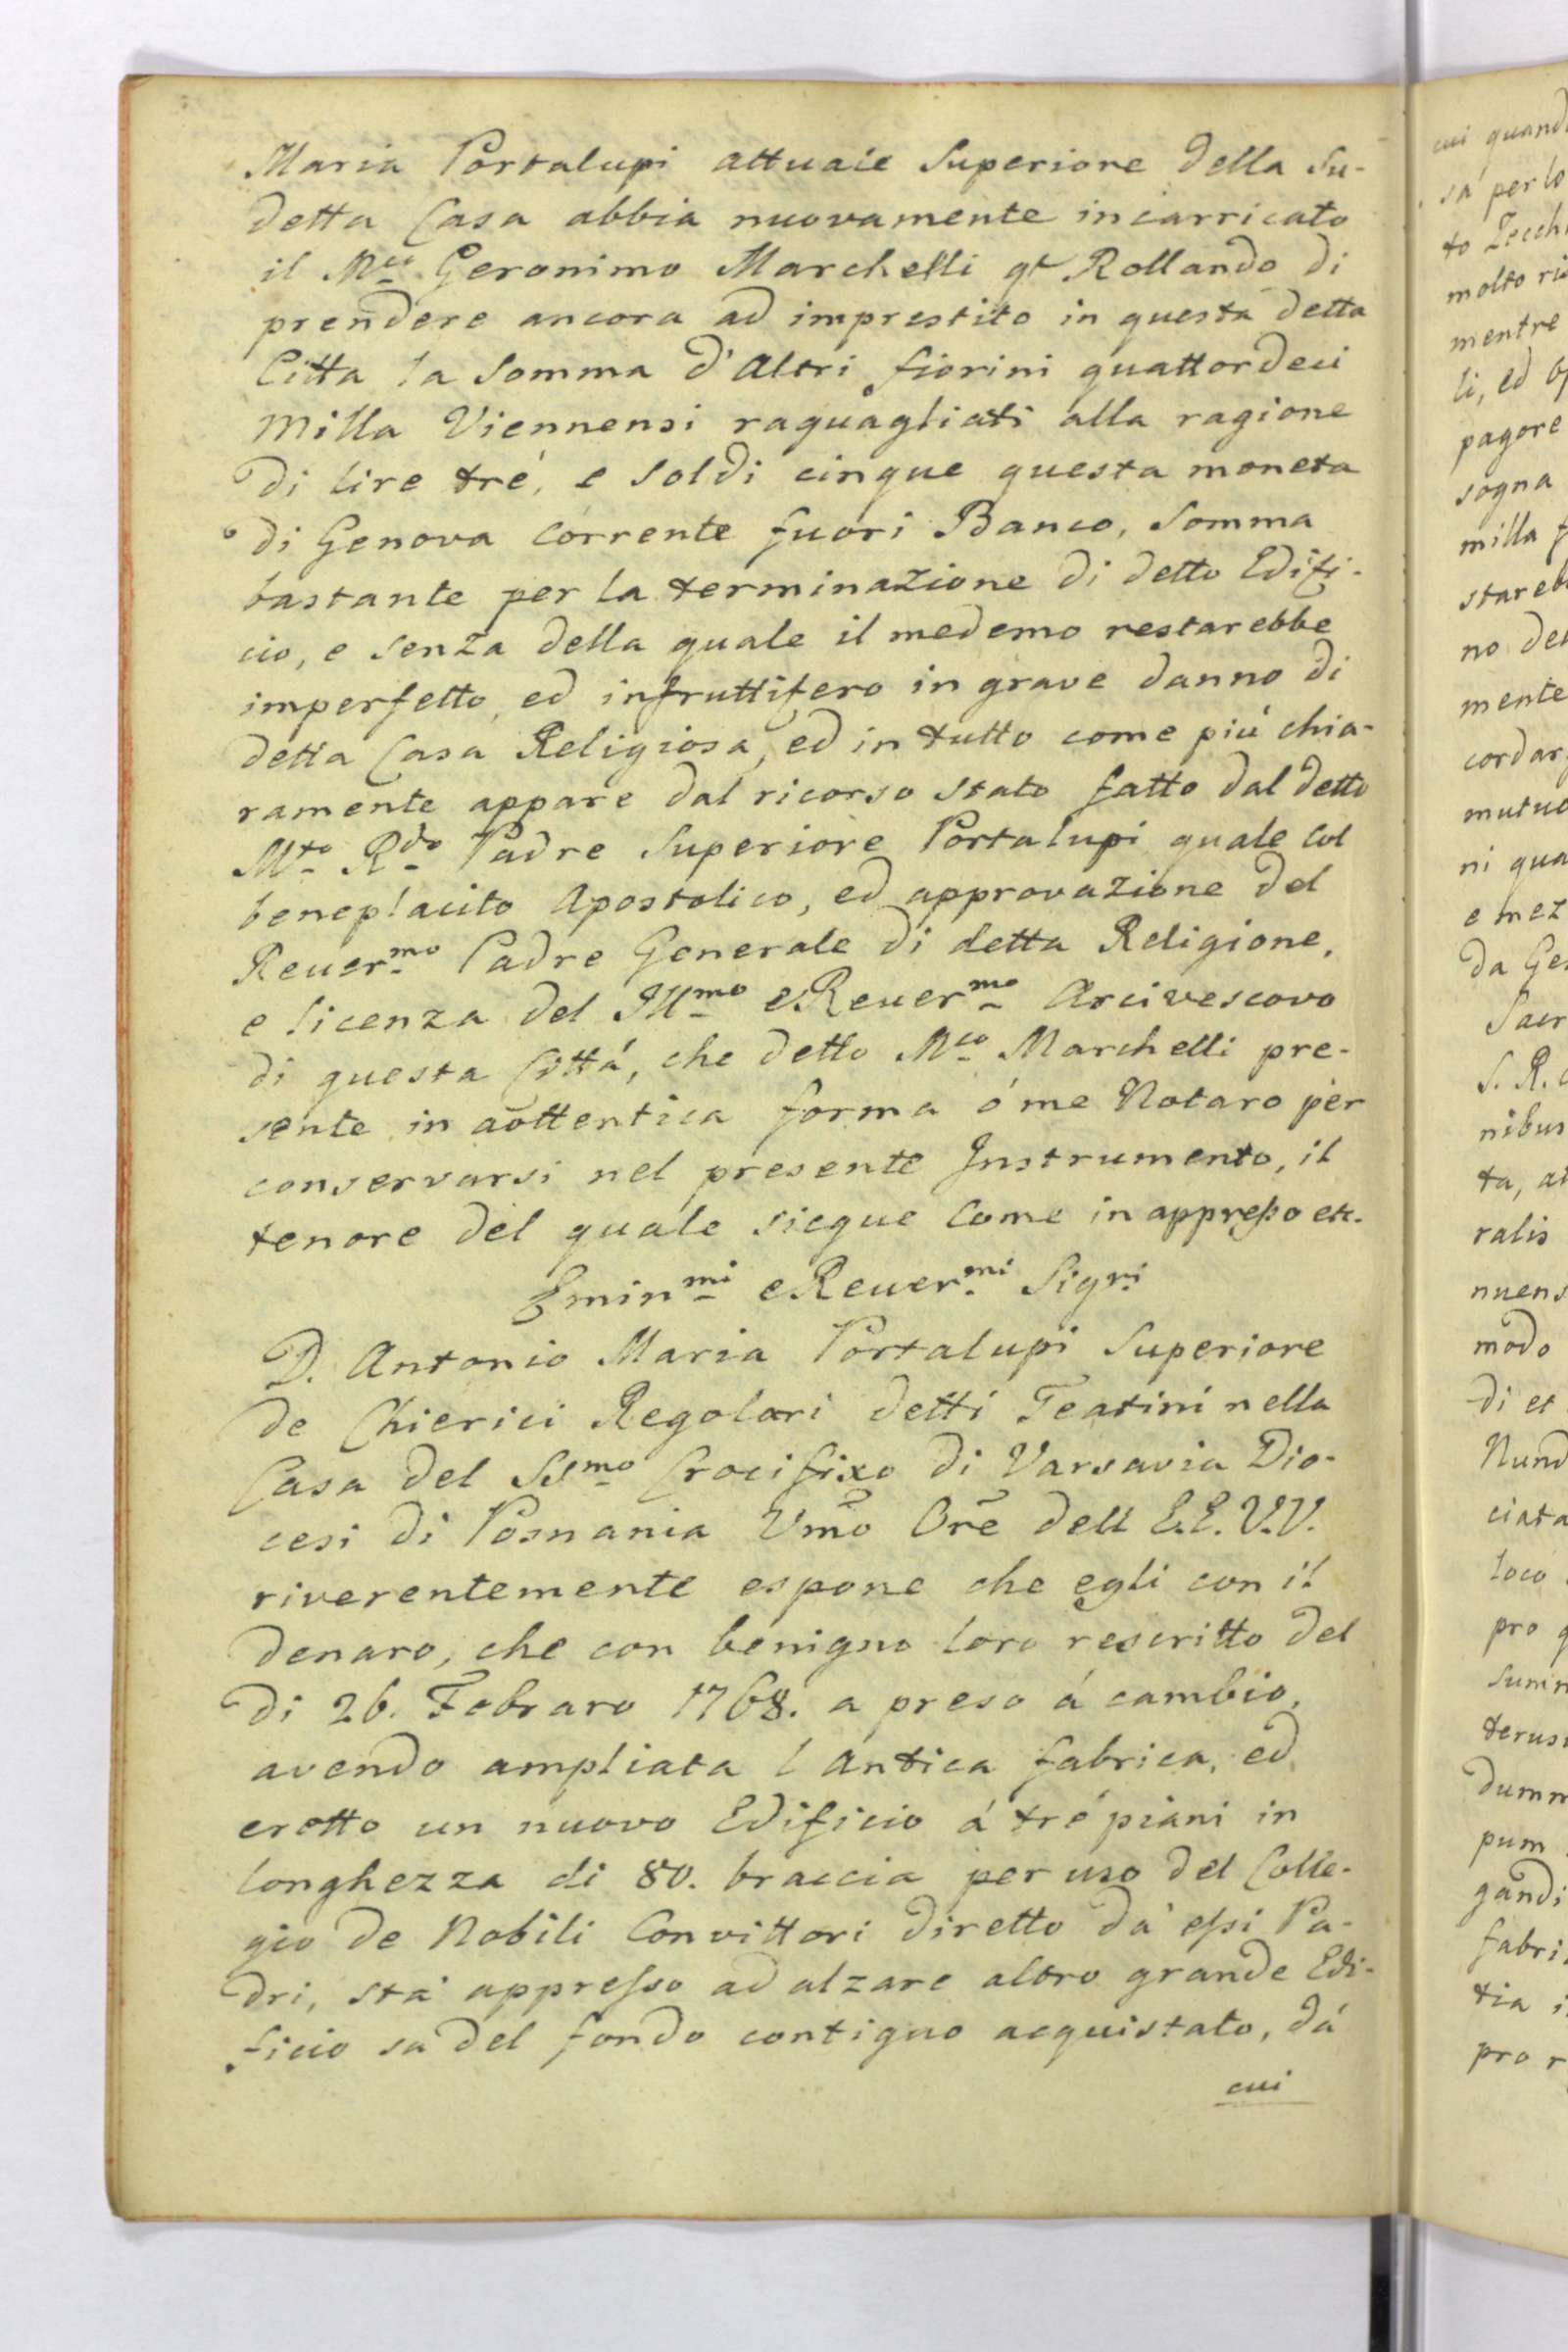 Maria Portalupi attuale Superiore della Su-
detta Casa abbia nuovamente incarricato
il Mco Geronimo Marchelli qt Rollando di
prendere ancora ad imprestito in questa detta
Citta la Somma d'Altri fiorini quattordeci
milla Viennensi raguagliati alla ragione
di lire tré, e Soldi cinque questa moneta
di Genova Corrente fuori Banco, Somma
bastante per la terminazione di detto Edifi-
cio, e senza della quale il medemo restarebbe
imperfetto, ed infruttifero in grave danno di
detta Casa Religiosa, ed in tutto come piú chia-
ramente appare dal ricorso stato fatto dal detto
Mto Rdo Padre Superiore Portalupi quale Col
beneplacito Apostolico, ed approvazione del
Reuermo Padre Generale di detta Religione,
e licenza del Illmo e Reuermo Arcivescovo
di questa Cittá, che detto Mco Marchelli pre-
sente in aottentica forma ó me Notaro per
conservarsi nel presente Instrumento, il
tenore del quale siegue Come in appresso etc.
Eminmi e Reuermi Sigri
D. Antonio Maria Portalupi Superiore
de Chierici Regolari detti Teatini nella
Casa del SSmo Crocifixo di Varsavia Dio-
cesi di Posnania Vmo Ore dell E.E. V.V.
riverentemente espone che egli con il
denaro, che con benigno loro rescritto del
di 26. Febraro 1768. a preso á cambio,
avendo ampliata l Antica fabrica, ed
erotto un nuovo Edificio á tré piani in
longhezza di 80. braccia per uso del Colle-
gio de Nobili Convittori diretto da essi Pa-
dri, sta appresso ad alzare altro grande Edi-
ficio sa del fondo contiguo acquistato, dá
cui
cui quand
sa per lo
to Zecchi
molto ri
mentre
li, ed
pagare
sogna
milla f
stareb
no det
mente
cordar
mutuo
ni qua
e mez
da Ge
Sacr
S. R.
nibus
ta,
ralis
nuens
modo
di et
Nund
ciata
loco
pro
Summ
terus
dumm
pum
gandi
fabri
tia
pro r